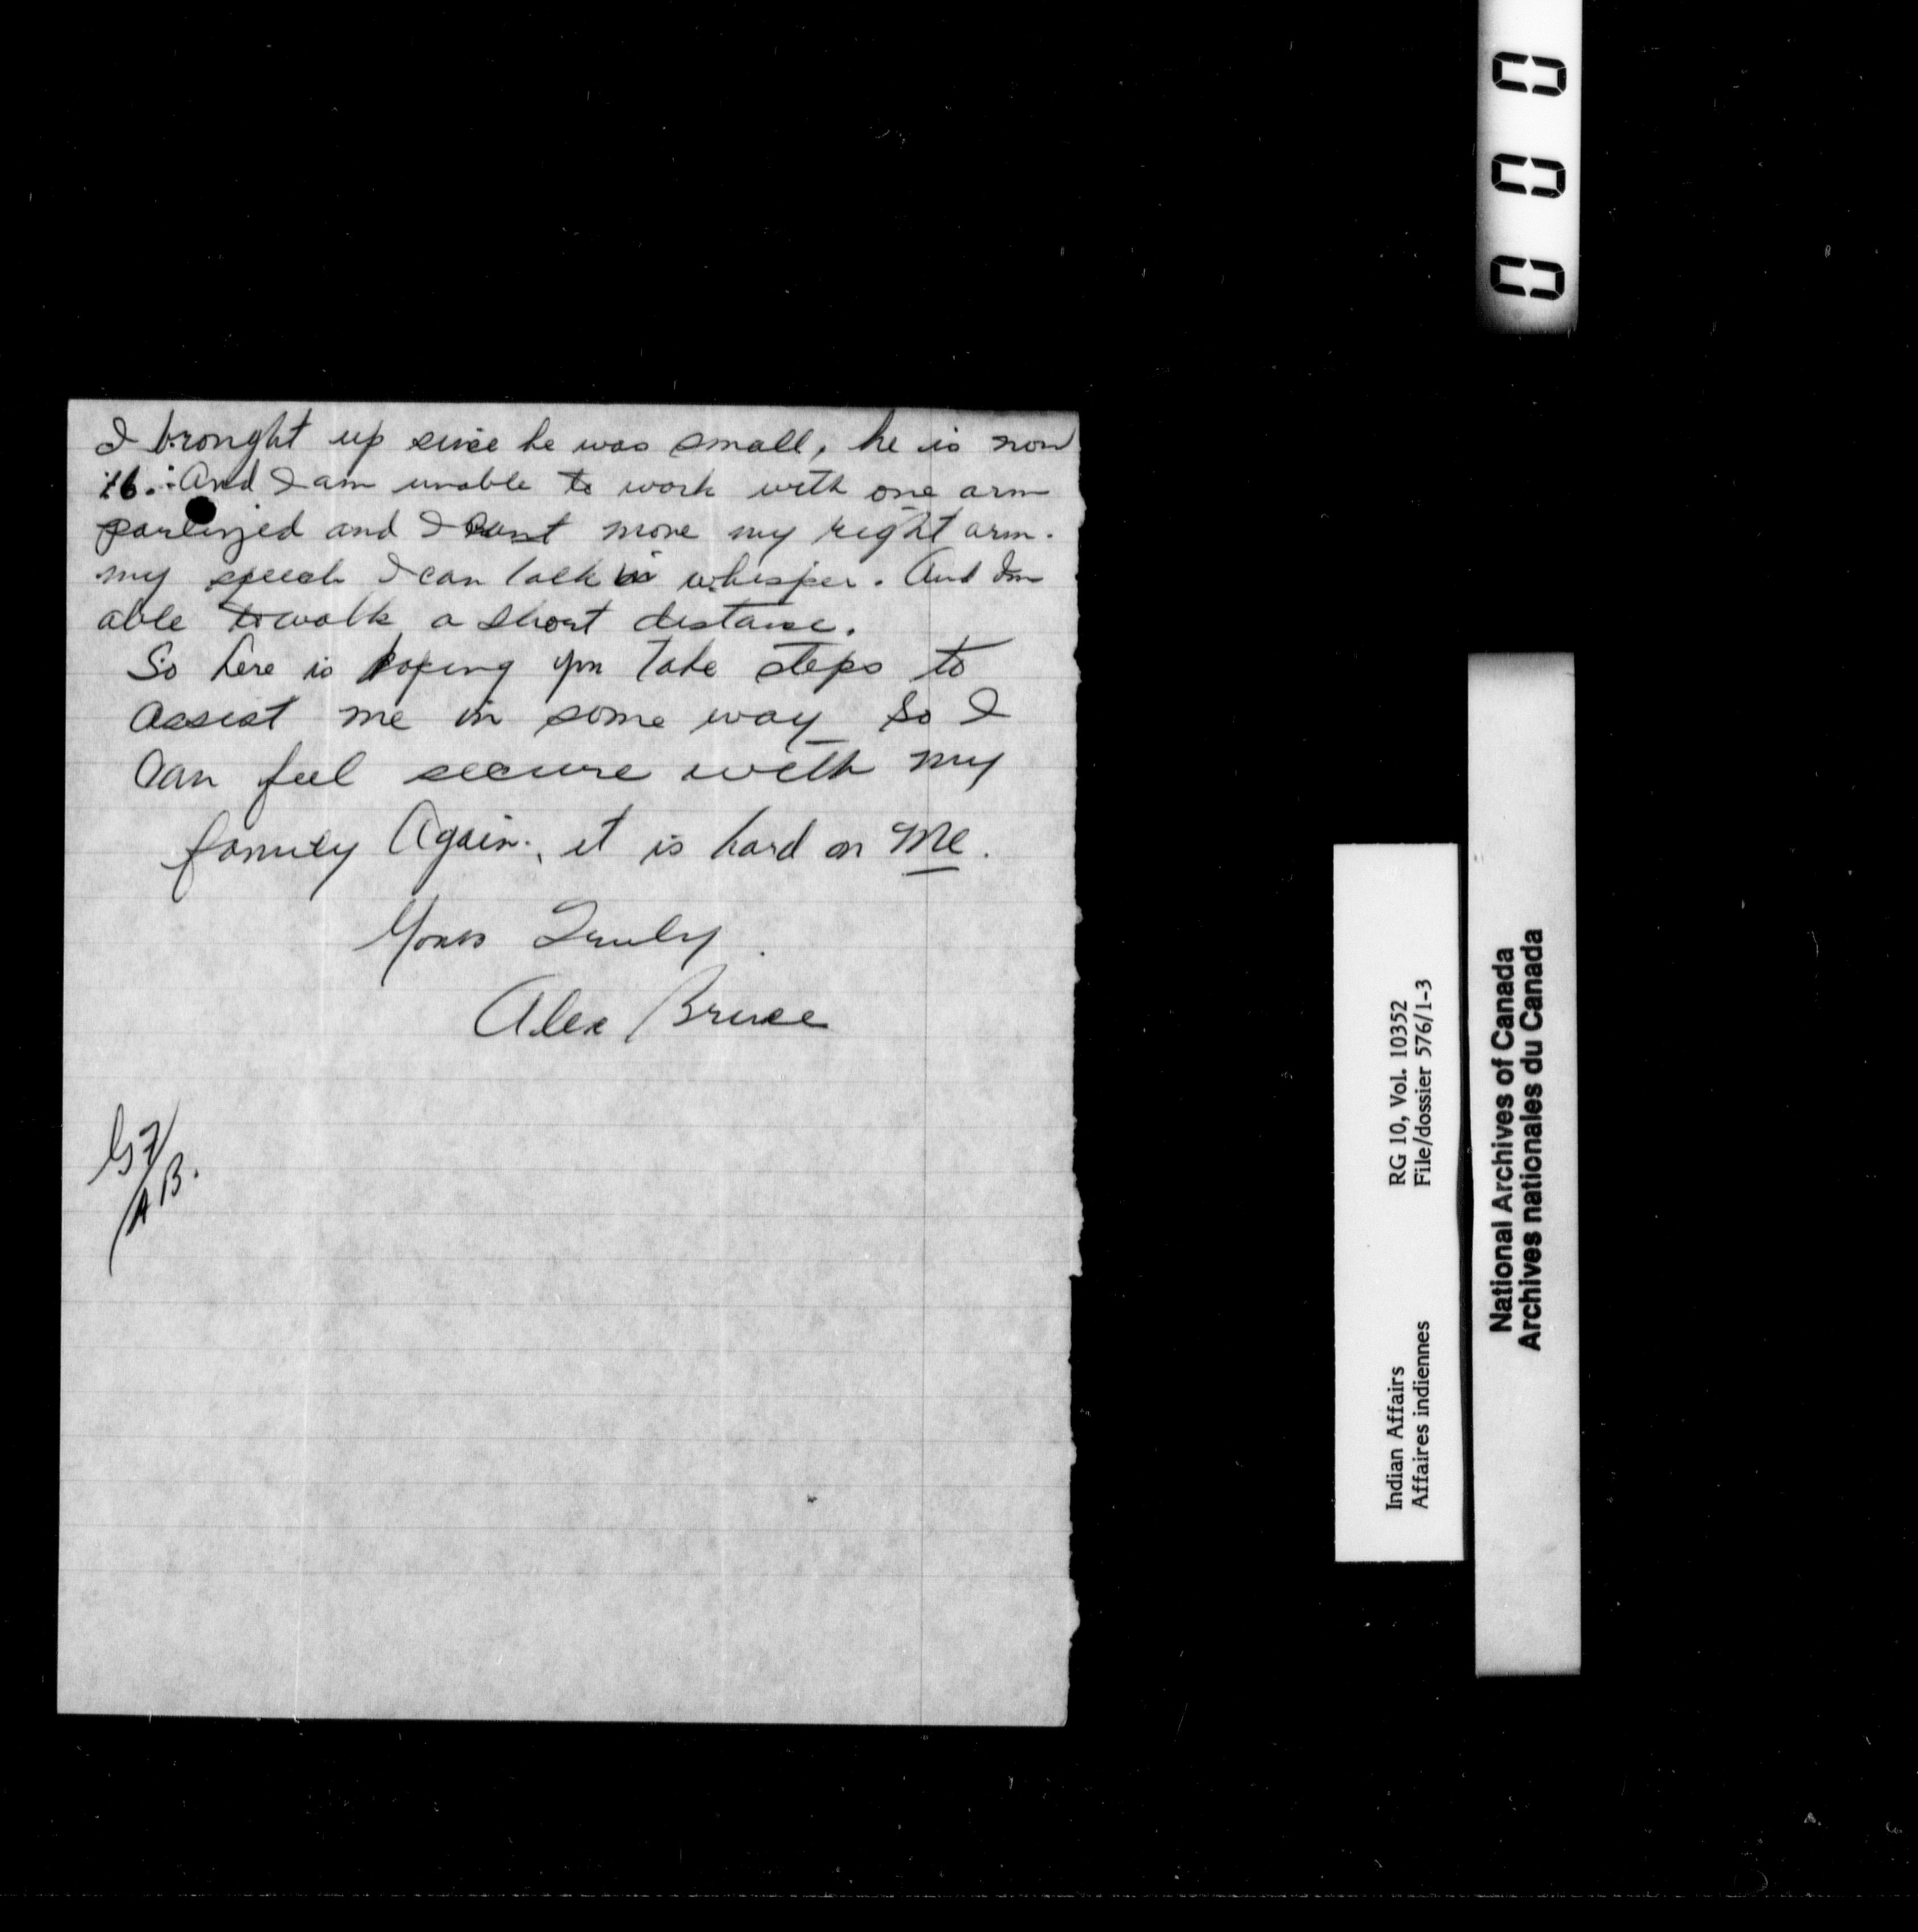 I brought up since he was small, he is now
16. And I am unable to work with one arm
parlinzed and I cant move my right arm.
my speech I can talk in whisper. And Im
able to walk a short distance.
So here is hoping you take steps to
assist me in some way so I
Can feel secure with my
family Again., it is hard on Me.
Yours Truly.
Alex Bruce
AB.
000
Indian Affairs RG 10, Vol. 10352
Affaires indiennes File/dossier 576/1-3
National Archives of Canada
Archives nationales du Canada